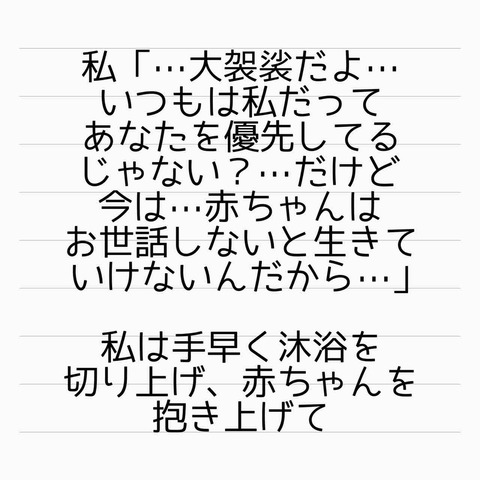 私「…大袈裟だよ…
いつもは私だって
あなたを優先してる
じゃない？…だけど
今は…赤ちゃんは
お世話しないと生きて
いけないんだから…」
私は手早く沐浴を
切り上げ、赤ちゃんを
抱き上げて